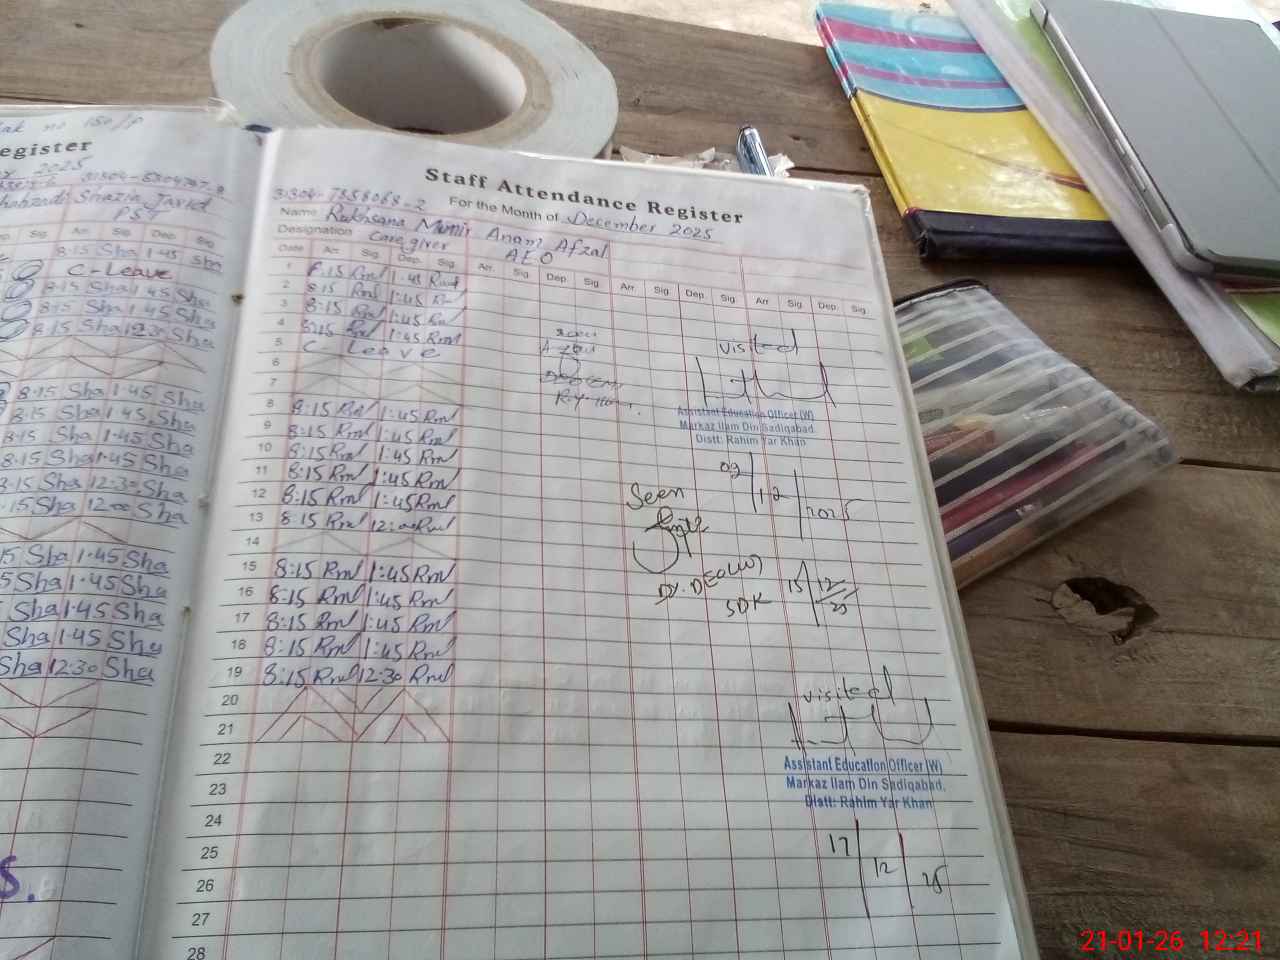 no 150/P
egister
2025
Shazia Javed
PST
Sig. Arr. Sig. Dep. Sig.
8:15 Sha 1:45 Sha
C-Leave
8:15 Sha 1:45 Sha
8:15 Sha 1:45 Sha
8:15 Sha 12:30 Sha
8:15 Sha 1:45 Sha
8:15 Sha 1:45 Sha
8:15 Sha 1:45 Sha
8:15 Sha 1:45 Sha
8:15 Sha 12:30 Sha
15 Sha 12:00 Sha
15 Sha 1:45 Sha
5 Sha 1:45 Sha
Sha 1:45 Sha
Sha 1:45 Sha
Sha 12:30 Sha
S.
Staff Attendance Register
31304-7358068-2
For the Month of December 2025
Name Rukhsana Munir Anam Afzal
Designation Care giver AEO
Date Arr. Sig. Dep. Sig. Arr. Sig. Dep. Sig. Arr. Sig. Dep. Sig. Arr. Sig. Dep. Sig.
1 8:15 Rml 1:45 Rml
2 8:15 Rml 1:45 Rml
3 8:15 Rml 1:45 Rml
4 8:15 Rml 1:45 Rml
5 C-Leave
6
7
8 8:15 Rml 1:45 Rml
9 8:15 Rml 1:45 Rml
10 8:15 Rml 1:45 Rml
11 8:15 Rml 1:45 Rml
12 8:15 Rml 1:45 Rml
13 8:15 Rml 12:00 Rml
14
15 8:15 Rml 1:45 Rml
16 8:15 Rml 1:45 Rml
17 8:15 Rml 1:45 Rml
18 8:15 Rml 1:45 Rml
19 8:15 Rml 12:30 Rml
20
21
22
23
24
25
26
27
28
visited
Assistant Education Officer (W)
Markaz Ilam Din Sadiqabad.
Distt: Rahim Yar Khan
09/12/2025
Seen
Dy. DEO(W)
SDK
15/12/25
visited
Assistant Education Officer (W)
Markaz Ilam Din Sadiqabad.
Distt: Rahim Yar Khan
17/12/25
21-01-26 12:21